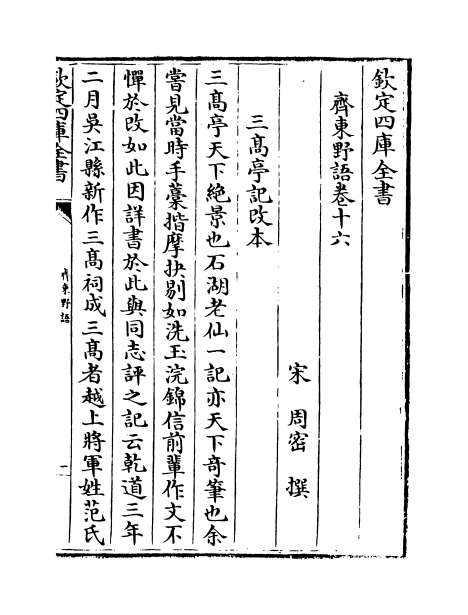 欽定四庫全書
齊東野語卷十六
宋 周密 撰
三髙亭記改本
三髙亭天下絶景也石湖老仙一記亦天下奇筆也余
嘗見當時手藁揩摩抉剔如洗玉浣錦信前輩作文不
憚於改如此因詳書於此與同志評之記云乾道三年
二月吳江縣新作三髙祠成三髙者越上將軍姓范氏
欽定四庫全書
齊東野語
一